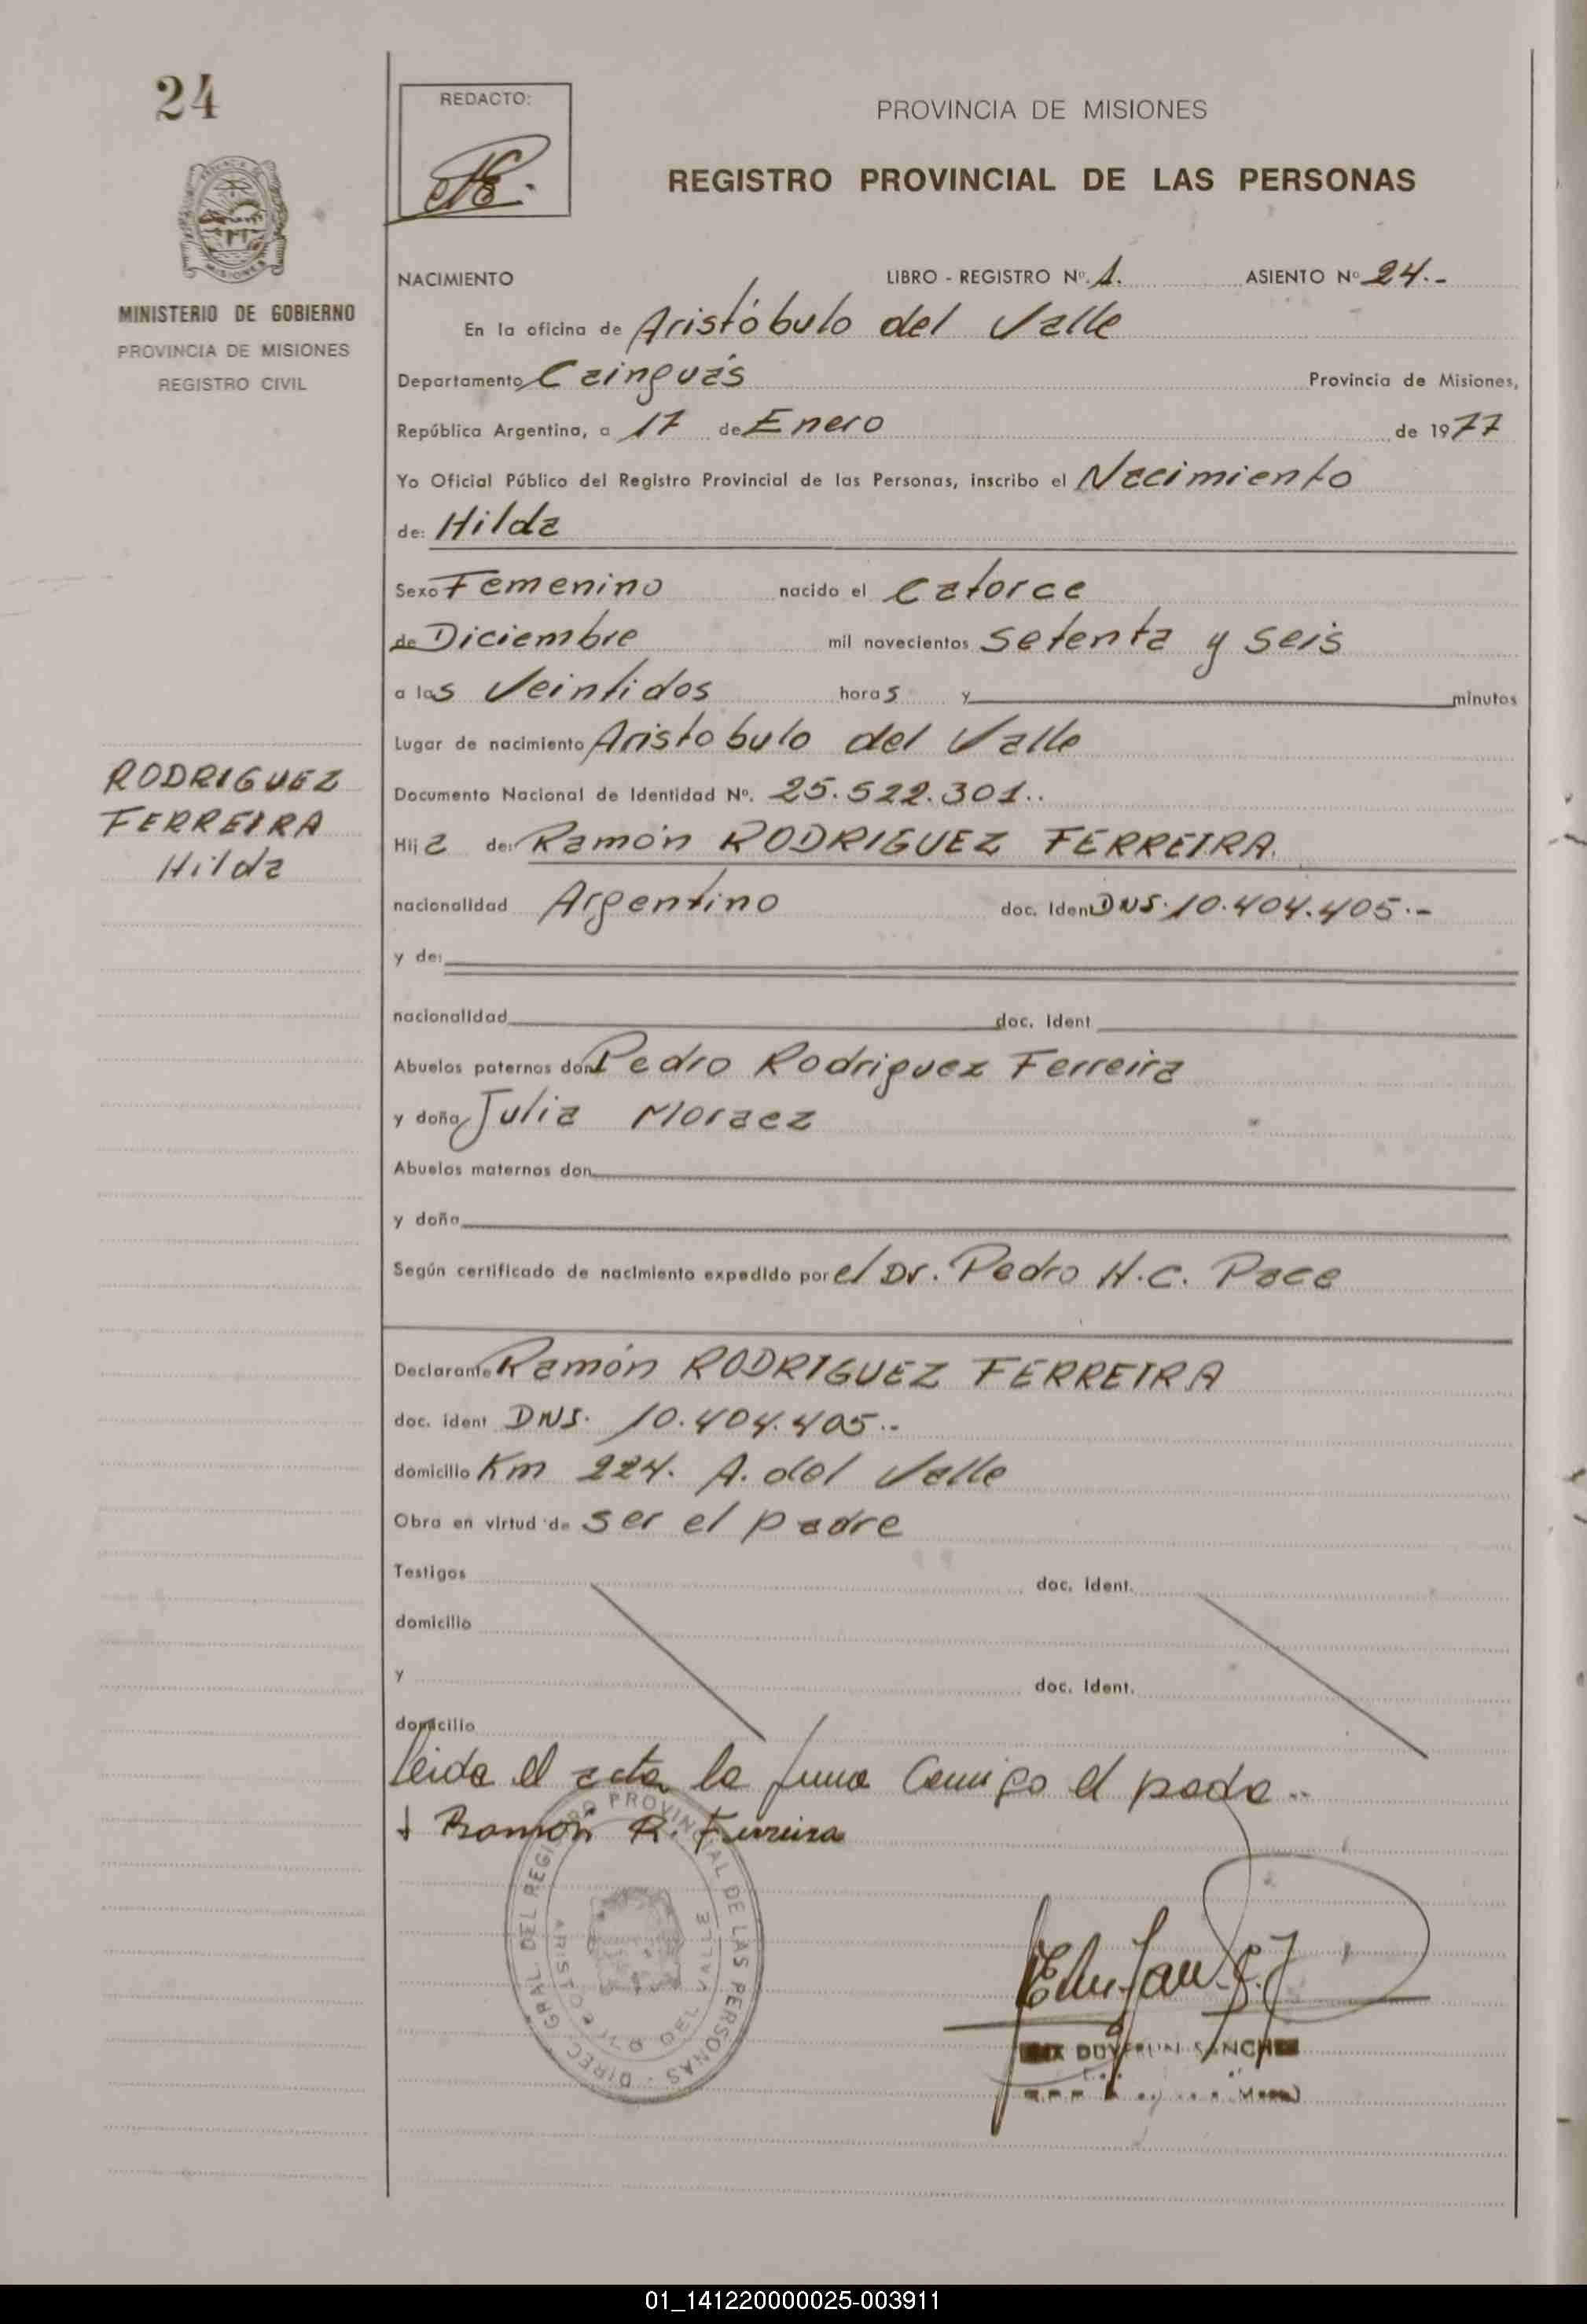 24
REDACTO:
PROVINCIA DE MISIONES
REGISTRO PROVINCIAL DE LAS PERSONAS
MISIONES
MINISTERIO DE GOBIERNO
PROVINCIA DE MISIONES
REGISTRO CIVIL
NACIMIENTO LIBRO - REGISTRO Nº. 1. ASIENTO Nº 24.-
En la oficina de Aristóbulo del Valle
Departamento Cainguás Provincia de Misiones,
República Argentina, a 17 de Enero de 1977
Yo Oficial Público del Registro Provincial de las Personas, inscribo el Nacimiento
de: Hilda
Sexo Femenino nacido el Catorce
de Diciembre mil novecientos setenta y seis
a las Veintidos horas y minutos
Lugar de nacimiento Aristobulo del Valle
RODRIGUEZ
FERREIRA
Hilda
Documento Nacional de Identidad Nº. 25.522.301..
Hija de: Ramón RODRIGUEZ FERREIRA.
nacionalidad Argentino doc. Iden DNI. 10.404.405.-
y de:
nacionalidad doc. Ident
Abuelos paternos don Pedro Rodriguez Ferreira
y doña Julia Moraez
Abuelos maternos don
y doña
Según certificado de nacimiento expedido por el Dr. Pedro H.C. Pace
Declarante Ramón RODRIGUEZ FERREIRA
doc. ident DNI. 10.404.405..
domicilio Km 224. A. del Valle
Obra en virtud de ser el padre
Testigos doc. Ident.
domicilio
y doc. Ident.
domicilio
Leida el acta la firma Conmigo el padre..
Ramón R. Ferreira
DIREC. GRAL. DEL REGISTRO PROVINCIAL DE LAS PERSONAS
ARISTOBULO DEL VALLE
01_141220000025-003911